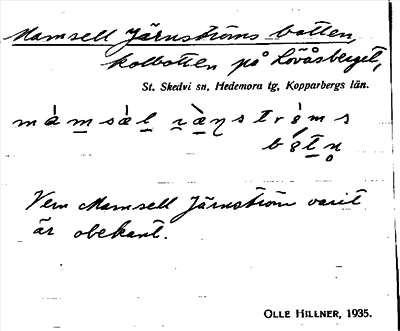 Mamsell Järnströms botten,
kolbotten på Lövåsberget,
St. Skedvi sn, Hedemora tg, Kopparbergs län.
Vem Mamsell Järnström varit
är obekant.
OLLE HILLNER, 1935.